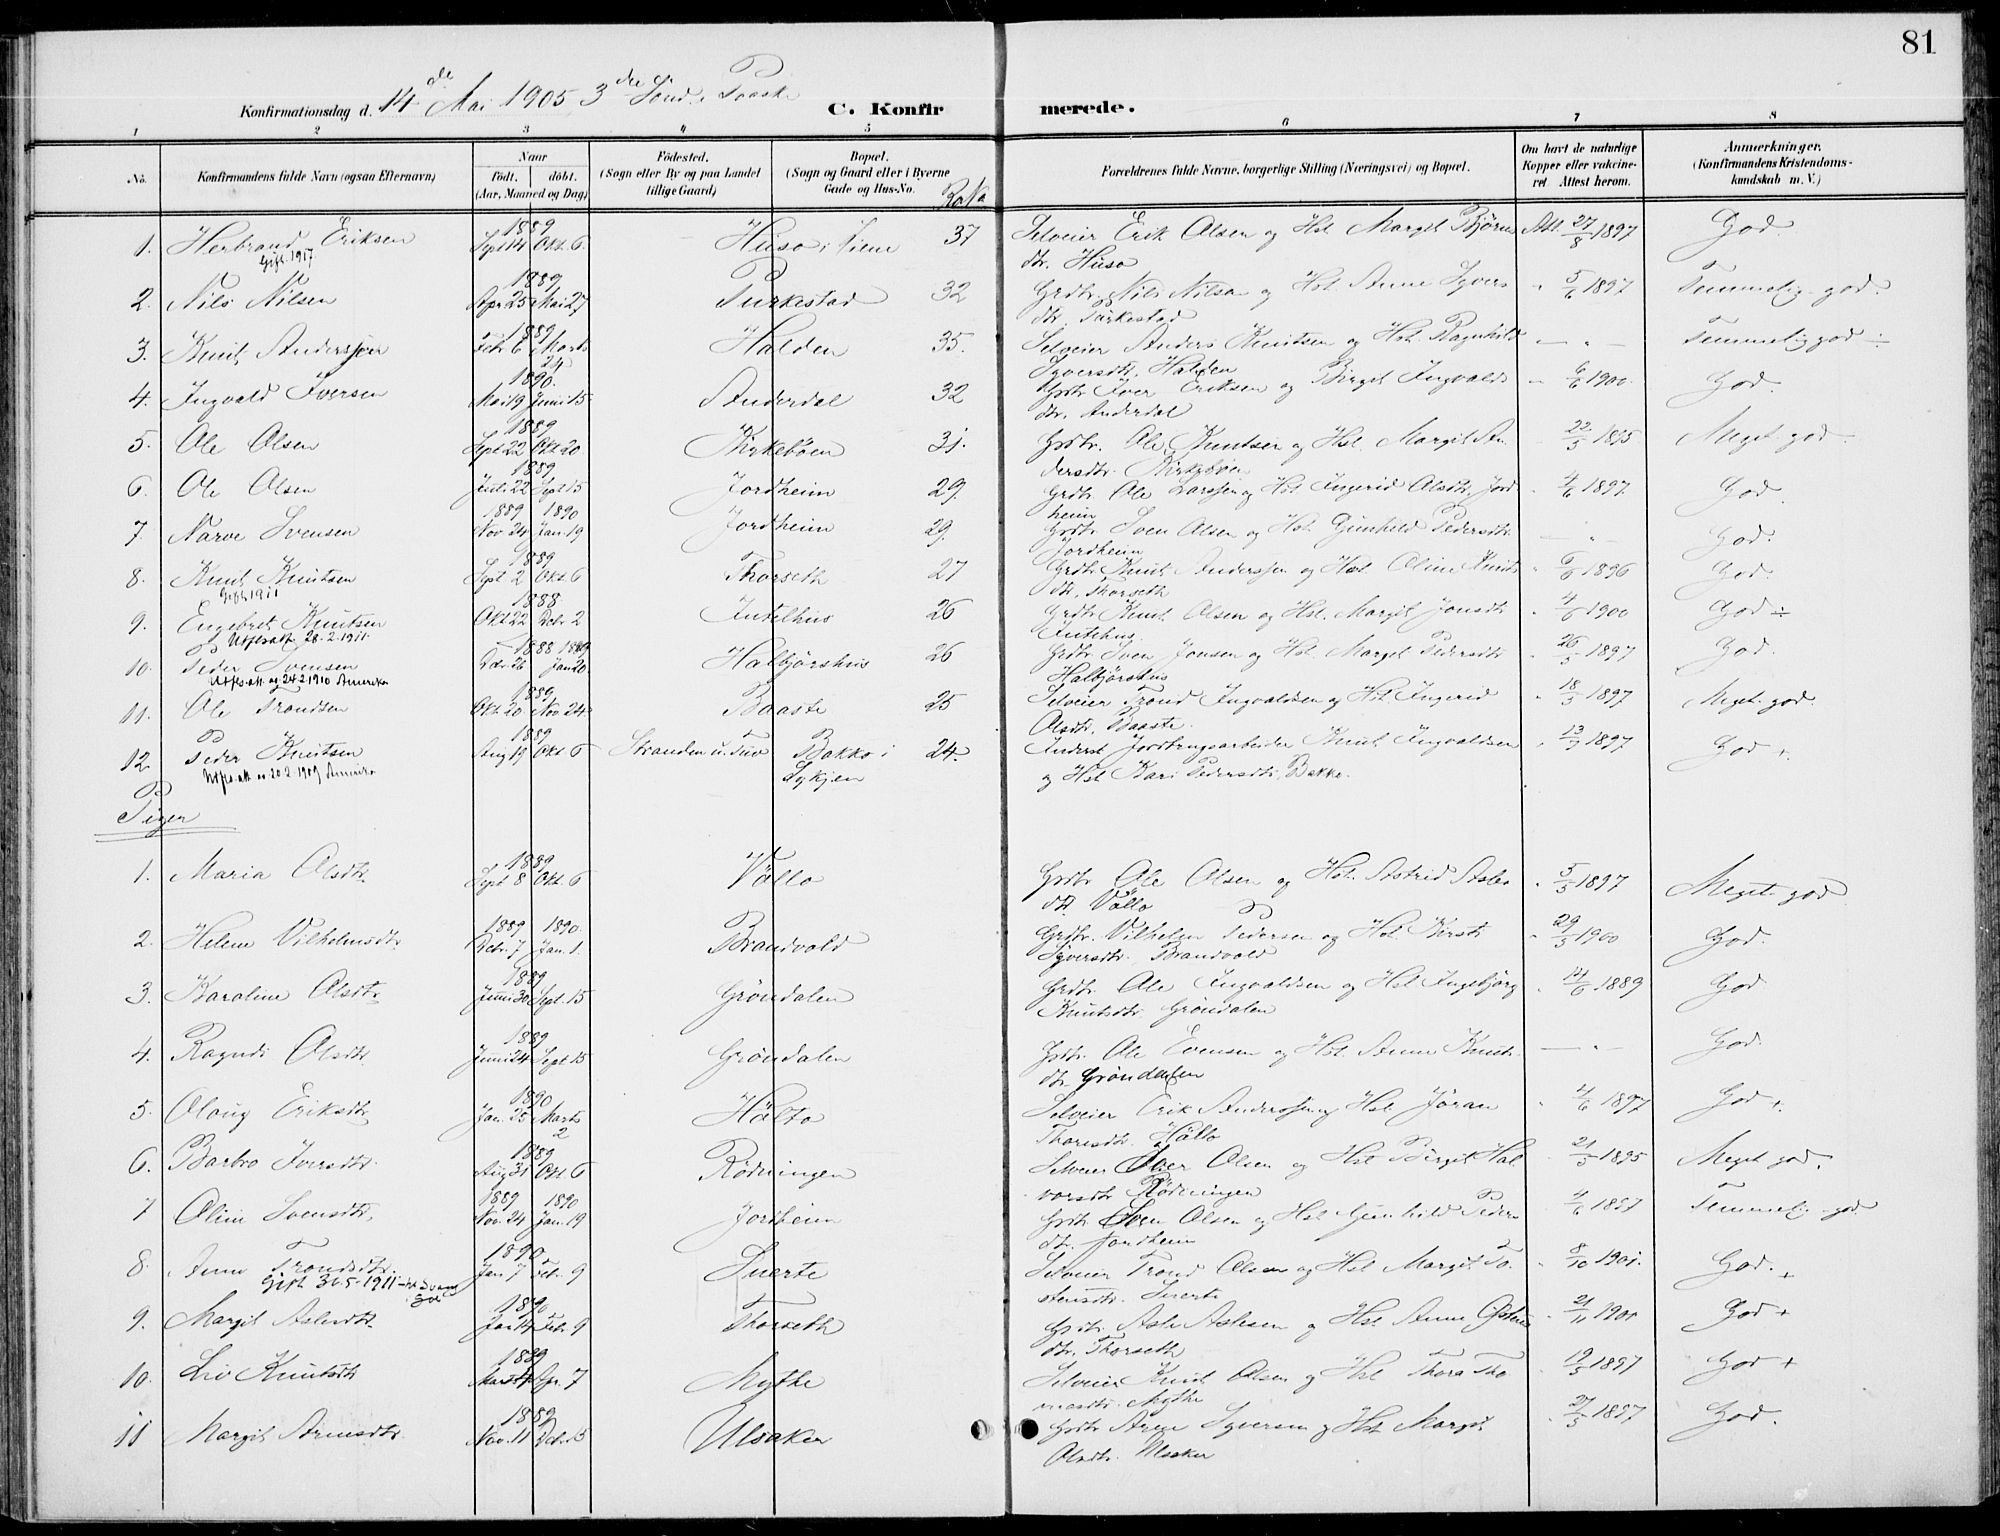 81
Konfirmationsdag d. 14de Mai 1905 3die Sönd. e. Paaske C. Konfirmerede.
1 2 3 4 5 6 7 8
No. Konfirmandens fulde Navn (ogsaa Efternavn). Naar födt. döbt. (Aar, Maaned og Dag) Födested. (Sogn eller By og paa Landet tillige Gaard) Bopæl. (Sogn og Gaard eller i Byerne Gade og Hus-No. Forældrenes fulde Navne, borgerlige Stilling (Næringsvei) og Bopæl. Om havt de naturlige Kopper eller vakcineret Attest herom. Anmerkninger. (Konfirmandens Kristendomskundskab m. V.)
1. Herbrand Eriksen 1889 Sept 14 Okt. 6. Huso i Viem 37 Selveier Erik Olsen og Hst. Margit Björns Att. 27/8 1897 God.
Gift 1917 dtr. Huso
2. Nils Nilsen 1889 Apr 25 Mai 27 Turkestad 32 Grdbr. Nils Nilsen og Hst. Anne Syvers " 5/6 1897 Temmelig god.
dtr. Turkestad
3. Knut Anderssen 1889 Febr 6 Marts 24 Halden 35. Selveier Anders Knutsen og Hst. Ragnhild — " — Temmelig god ÷
Syversdtr. Halden
4. Ingvald Iversen 1890. Mai 19 Juni 15 Anderdal 32 Grdbr Iver Eriksen og Birgit Ingvalds " 6/6 1900. God.
dtr. Anderdal
5. Ole Olsen 1889 Sept 22 Okt 20 Kirkebøen 31. Grdbr. Ole Knutsen og Hst. Margit An 22/5 1895 Meget god.
dersdtr. Kirkebøen
6. Ole Olsen 1889 Juli 22 Sept 15 Jordheim 29. Grdbr. Ole Larssen og Hst Ingerid Olsdtr. Jord " 4/6 1897. God
heim
7. Narve Svensen 1889 1890 Nov 24 Jan. 19 Jordheim 29. Grdbr Sven Olsen og Hst. Gunhild Pedersdtr. — " — God.
Jordheim
8. Knut Knutsen 1889 Sept 2 Okt 6 Thorseth 27 Grdbr Knut Anderssen og Hst Oline Knuts " 6/6 1896 God.
Gift 1911 dtr. Thorseth
9. Engebret Knutsen 1888. Okt 22 Dcbr. 2 Intelhus 26 Grdbr Knut Olsen og Hst. Margit Jonsdtr " 4/6 1900 God ÷
Utfl.att 28-2-1911. Intelhus.
10. Peder Svensen 1888 1889 Dcbr. 26 Jan 20. Halbjörshus 26 Grdbr Sven Jonsen og Hst. Margit Pedersdtr " 26/5 1897 God.
Utfl.att. ag 24.2.1910 Amerika Halbjörshus
11. Ole Trondsen 1889 Okt. 20 Nov. 24 Baaste 25 Selveier Trond Ingvaldsen og Hst. Ingerid " 18/5 1897 Meget god.
Olsdtr. Baaste.
12. Peder Knutsen 1889 Aug 19 Okt 6 Stranden u. Tuv Bakko i 24. Inderst Jordbrugsarbeider Knut Ingvaldsen " 13/7 1897 God +
Utfl.att ag 20.2.1909 Amerika Lykjen og Hst Kari Pedersdtr. Bakko.
Piger
1. Maria Olsdtr. 1889 Sept 8 Okt. 6 Völlo Grdbr Ole Olsen og Hst. Astrid Asles " 5/5 1897 Meget god
dtr. Völlo
2. Helene Vilhelmsdtr. 1889 1890. Dcbr. 7 Jan. 1. Brandvold Grdbr. Vilhelm Pedersen og Hst. Kirsti " 29/5 1900 God.
Syversdtr. Brandvold
3. Karoline Olsdtr. 1889 Juni 30 Sept. 15 Gröndalen Grdbr. Ole Ingvaldsen og Hst Ingebjörg " 14/6 1889 God
Knutsdtr. Gröndalen
4. Ragndi Olsdtr 1889 Juni 24 Sept 15 Gröndalen Grdbr. Ole Evensen og Hst. Anne Knuts — " — God.
dtr. Gröndalen
5. Olaug Eriksdtr 1890 Jan. 25 Marts 2 Hölto Selveier Erik Anderssen og Hst Jöran " 4/6 1897 God +.
Thoresdtr. Hölto
6. Barbro Iversdtr. 1889 Aug 31 Okt 6 Rödningen Selveier Iver Olsen og Hst Birgit Hal 21/5 1895 Meget god.
vorsdtr Rödningen
7 Oline Svensdtr. 1889 1890 Nov. 24 Jan. 19 Jordheim Grdbr Sven Olsen og Hst Gunhild Peders " 4/6 1897 Temmelig god.
dtr. Jordheim
8. Anne Trondsdtr. 1890 Jan 7 Febr. 9 Snerte Selveier Trond Olsen og Hst Margit To " 8/10 1901. God. +
Gift 31-5-1911 stensdtr. Snerte
9. Margit Aslesdtr. 1890 Jan 14 Febr. 9 Thorseth Grdbr. Asle Aslesen og Hst Anne Östens 21/11 1901 God +
dtr. Thorseth
10. Liv Knutsdtr 1889 Marts Apr. 7 Mythe Selveier Knut Olsen og Hst Thora Tho " 19/5 1897 God +
masdtr. Mythe
11 Margit Arnesdtr. 1889 Nov. 11 Dcbr. 15 Ulsaker Grdbr Arne Syversen og Hst. Margit " 27/5 1897 God.
Olsdtr. Ulsaker